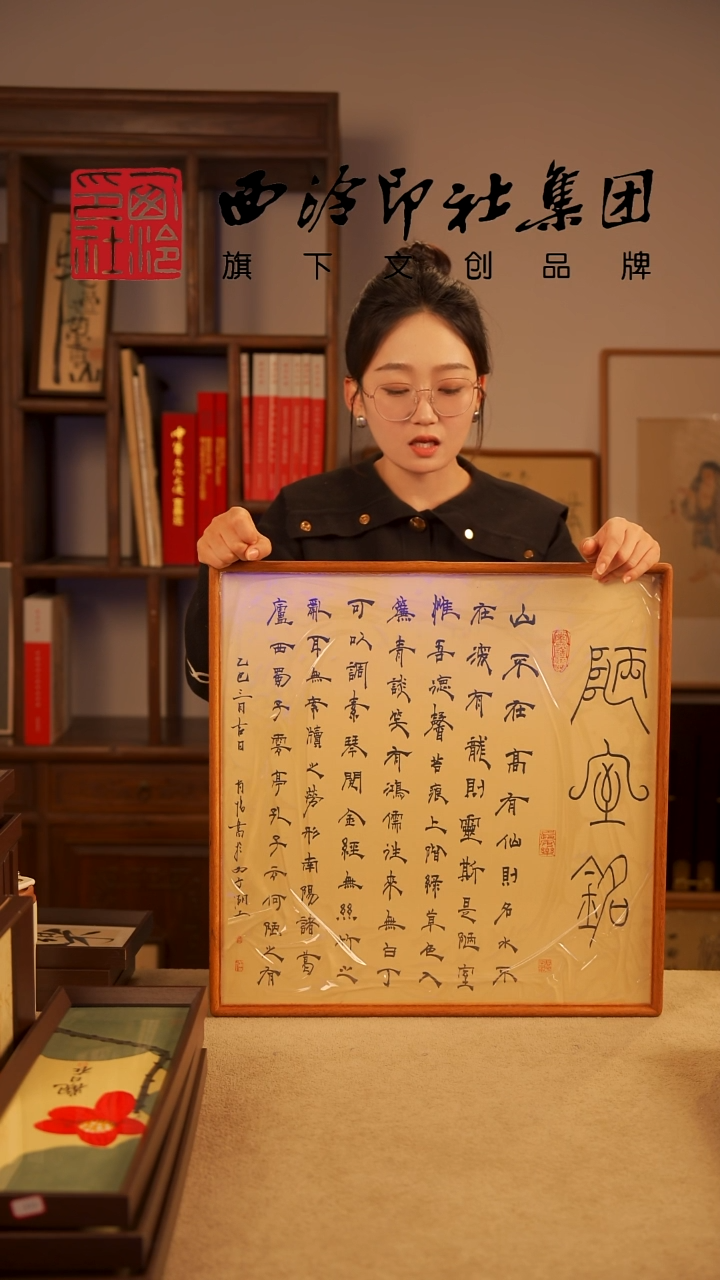 西泠印社
西泠印社集团
旗下文创品牌
陋室銘
山不在高有仙則名水不
在深有龍則靈斯是陋室
惟吾德馨苔痕上階綠草色入
簾青談笑有鴻儒往來無白丁
可以調素琴閱金經無絲竹之
亂耳無案牘之勞形南陽諸葛
廬西蜀子雲亭孔子云何陋之有
乙巳三月吉日